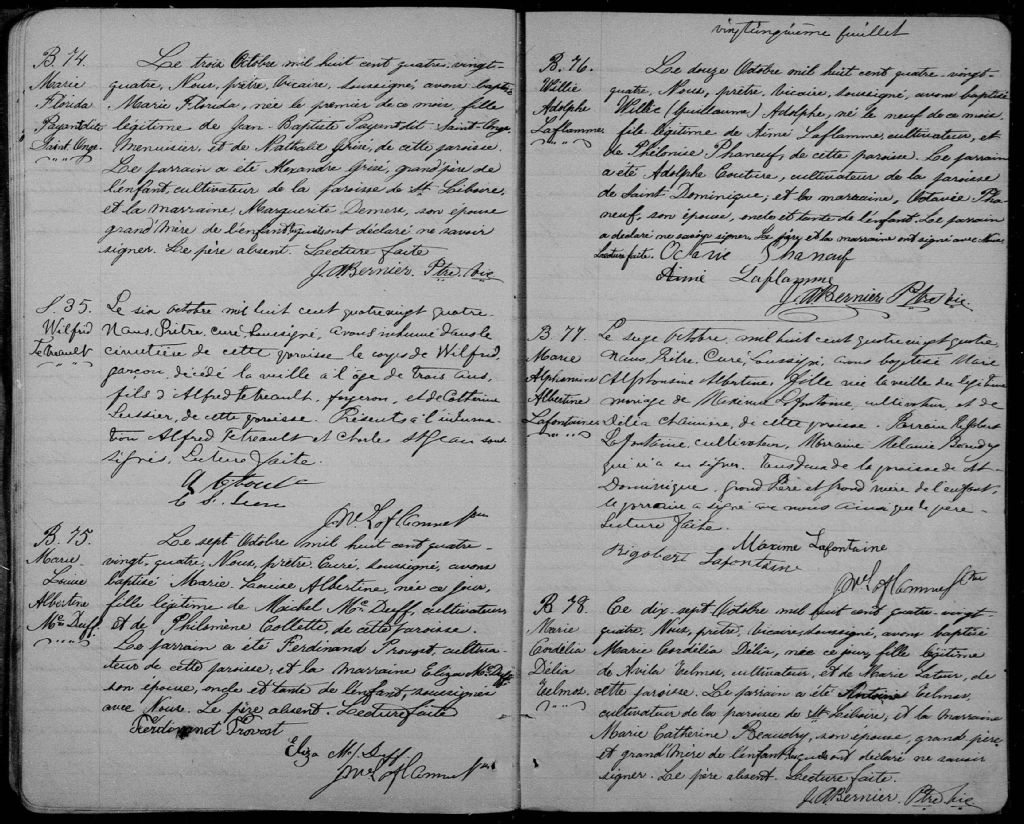 B. 74.
Marie
Florida
Payantdit
Saint Onge
Le trois Octobre mil huit cent quatre-vingt-
quatre, Nous, prêtre, vicaire, soussigné, avons baptisé
Marie Florida, née le premier de ce mois, fille
légitime de Jean-Baptiste Payentdit Saint-Onge
menuisier, et de Nathalie Grisé, de cette paroisse.
Le parrain a été Alexandre Grisé, grand'père de
l'enfant, cultivateur de la paroisse de St Liboire,
et la marraine, Marguerite Demers, son épouse
grand'mère de l'enfant lesquels ont déclaré ne savoir
signer. Le père absent. Lecture faite
J. A. Bernier, Ptre, vic
S. 35.
Wilfrid
Tetreault
Le six octobre mil huit cent quatre vingt quatre.
Nous, Prêtre, curé, soussigné, avons inhumé dans le
cimetière de cette paroisse le corps de Wilfrid,
garçon, décédé la veille à l'âge de trois ans,
fils d'Alfred Tetreault, forgeron, et de Catherine
Lussier, de cette paroisse. Présents à l'inhuma-
tion Alfred Tetreault et Charles St Jean sous
signés. Lecture faite.
B. 75.
Marie
Louise
Albertine
Mc Duff.
Le sept Octobre mil huit cent quatre-
vingt, quatre, Nous, prêtre, Curé, soussigné, avons
baptisé Marie Louise Albertine, née ce jour,
fille légitime de Michel Mc Duff, cultivateur
et de Philomène Collette, de cette paroisse.
Le parrain a été Ferdinand Provost, cultiva-
teur de cette paroisse, et la marraine Eliza Mc Duff
son épouse, oncle et tante de l'enfant, soussignés
avec Nous. Le père absent. Lecture faite
Ferdinand Provost
Eliza Mc Duff
vingtcinquième feuillet
B. 76.
Willie
Adolphe
Laflamme
Le douze Octobre mil huit cent quatre-vingt-
quatre, Nous, prêtre, vicaire, soussigné, avons baptisé
Willie (Guillaume) Adolphe, né le neuf de ce mois
fils légitime de Aimé Laflamme, cultivateur, et
de Philomise Phaneuf, de cette paroisse. Le parrain
a été Adolphe Couture, cultivateur de la paroisse
de Saint Dominique, et la marraine, Octavie Pha-
neuf, son épouse, oncle et tante de l'enfant. Le parrain
a déclaré ne savoir signer. Le père et la marraine ont signé avec Nous
Lecture faite. Octavie Phaneuf
Aimé Laflamme
J. A. Bernier, Ptre, vic.
B. 77.
Marie
Alphonsine
Albertine
Lafontaine
Le seize Octobre, mil huit cent quatre vingt quatre,
Nous, Prêtre, Curé, soussigné, avons baptisé Marie
Alphonsine Albertine, fille née la veille du légitime
mariage de Maxime Lafontaine, cultivateur, et de
Délia de cette paroisse. Parrain Rigobert
Lafontaine, cultivateur, Marraine Melanie Beaudry
qui n'a su signer. Tous deux de la paroisse de St-
Dominique, grand Père et grand mère de l'enfant,
le parrain a signé avec nous ainsi que le père.
Lecture faite.
Maxime Lafontaine
Rigobert Lafontain
B. 78.
Marie
Cordélia
Délia
Telmos
Ce dix-sept Octobre mil huit cent quatre-vingt-
quatre, Nous, prêtre, Vicaire, soussigné, avons baptisé
Marie Cordélia Délia, née ce jour, fille légitime
de Avila Telmos, cultivateur, et de Marie Latour, de
cette paroisse. Le parrain a été Antoine Telmos,
cultivateur de la paroisse de St Liboire, et la marraine
Marie Catherine Beaudry, son épouse, grand père
et grand'Mère de l'enfant, lesquels ont déclaré ne savoir
signer. Le père absent. Lecture faite.
J. A. Bernier, Ptre, vic